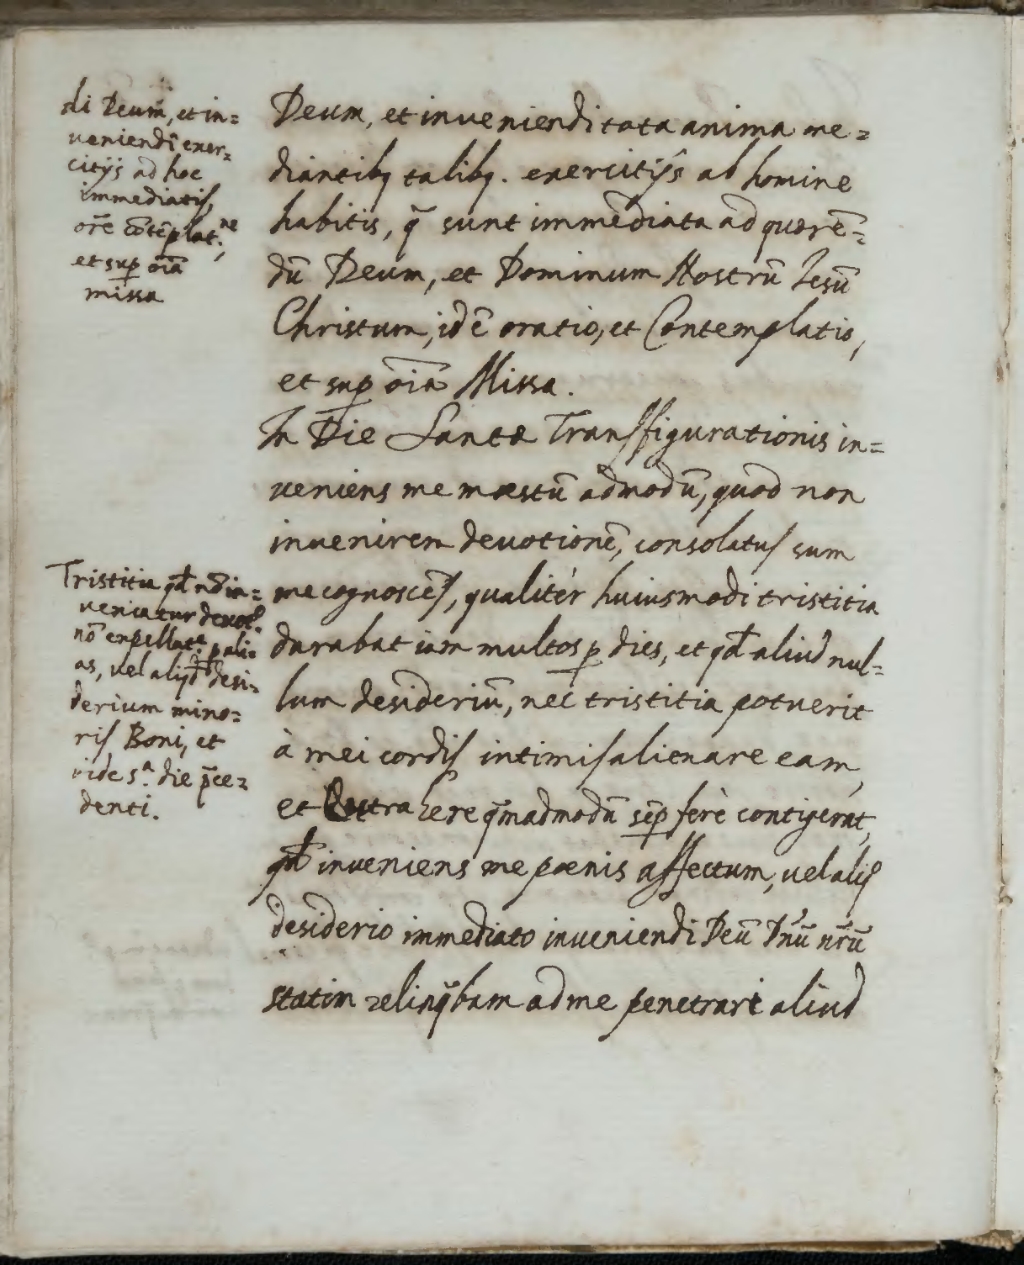 di Deum, et in=
veniendi exer=
citijs ad hoc
immediatis,
orē cōtēplat.ne,
et sup oīa
missa
Deum, et inveniendi tota anima me=
diantibq talibq. exercitijs ab homine
habitis, q̄ sunt immediata ad quærē=
dū Deum, et Dominum Nostrū Jesū
Christum, idē oratio, et Contemplatio,
et sup oīa Missa.
In Die Sanctæ Transfigurationis in=
veniens me mœstū admodū, quod non
invenirem devotionē, consolatus sum
me cognoscēs, qualitèr huiusmodi tristitia
durabat iam multos p dies, et qd aliud nul=
lum desideriū, nec tristitia potuerit
à mei cordis intimis alienare eam,
et extrahere q̄madmodū sēp ferè contigerat,
qd inveniens me pœnis affectum, vel aliq
desiderio immediato inveniendi Deū Dn̄ū nr̄ū
statim relinq̄bam ad me penetrare aliud
Tristitia qd nō in=
veniatur devot.
nō expellat.r p ali=
as, vel aliqd desi=
derium mino=
ris Boni, et
vide s.a die p̄ce=
denti.